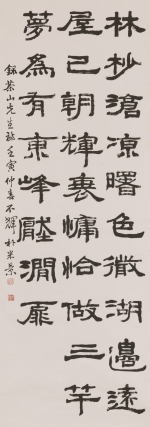 林杪滄凉曙色微湖邊遠
屋已朝輝喪慵恰做三竿
夢為有東峰壓澗扉
錄葉山先生詠壬寅仲春不輝於米景